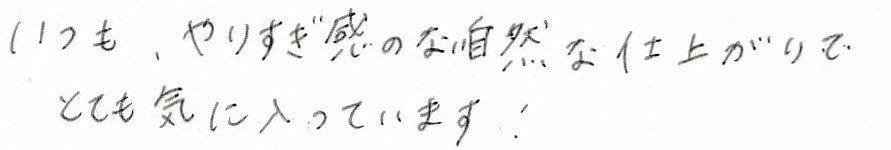 いつも、やりすぎ感のない自然な仕上がりで
とても気に入っています!